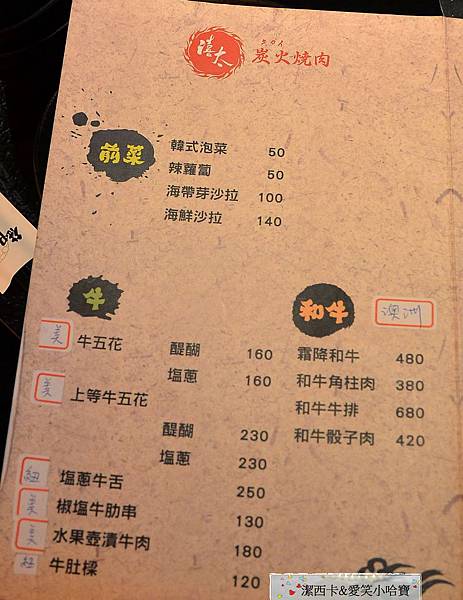 禧太
炭火燒肉
前菜
韓式泡菜 50
辣蘿蔔 50
海帶芽沙拉 100
海鮮沙拉 140
牛
美 牛五花
醍醐 160
塩蔥 160
美 上等牛五花
醍醐 230
塩蔥 230
紐 塩蔥牛舌 250
美 椒塩牛肋串 130
美 水果壺漬牛肉 180
紐 牛肚樑 120
和牛 澳洲
霜降和牛 480
和牛角柱肉 380
和牛牛排 680
和牛骰子肉 420
潔西卡&愛笑小哈寶